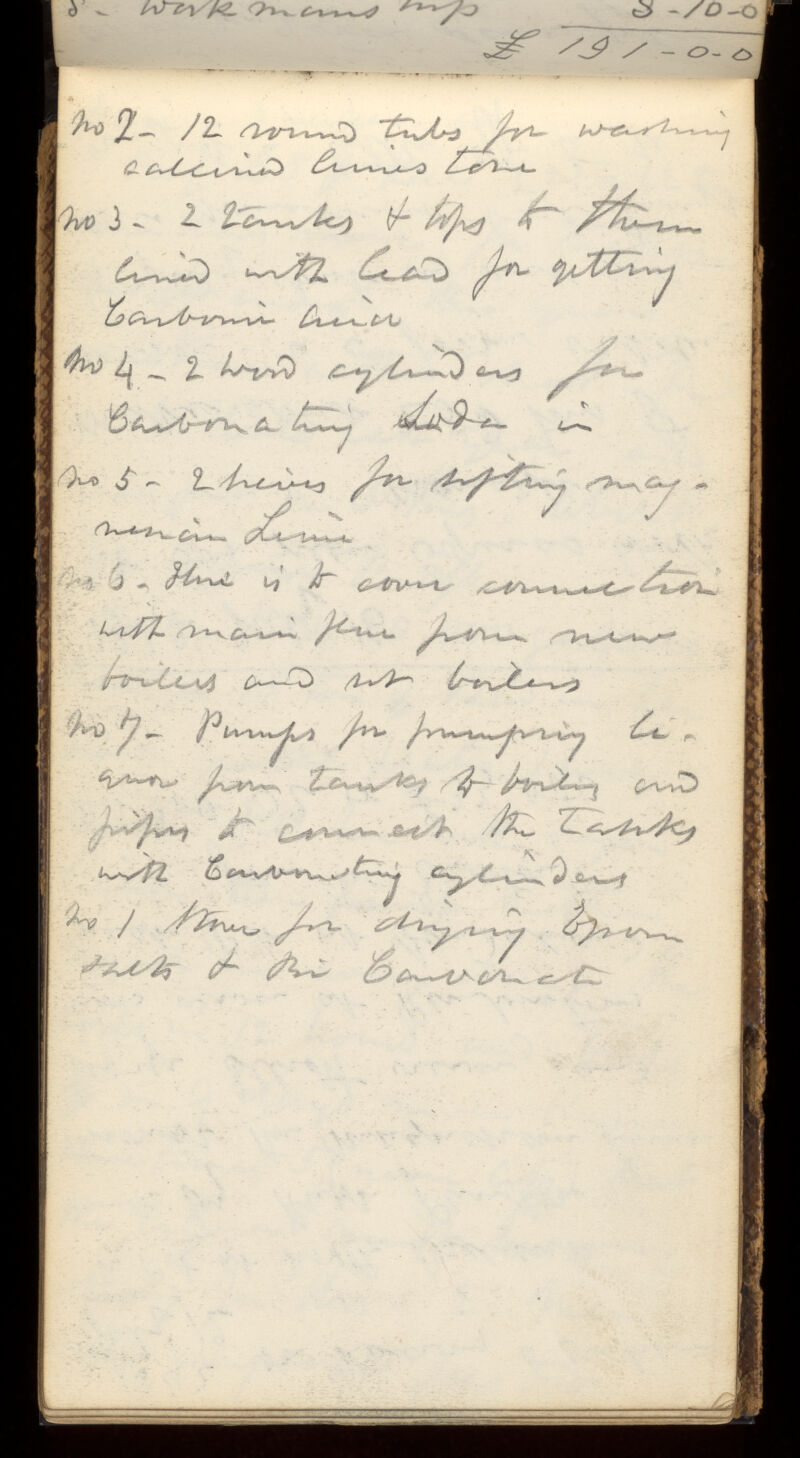 8 - Workmanship 8-10-0
£ 191-0-0
No 2 - 12 round tubs for washing
calcined limestone
No 3 - 2 tanks & tops to them
lined with lead for getting
Carbonic Acid
No 4 - 2 wood cylinders for
Carbonating Soda in
No 5 - 2 seives for sifting mag-
nesian Lime
No 6 - Flue is to cover connection
with main flue from new
boilers and set boilers
No 7 - Pumps for pumping li-
quor from tanks to boilers and
pipes to connect the tanks
with Carbonating cylinders
No 1 Stove for drying Epsom
salts & Bi Carbonate